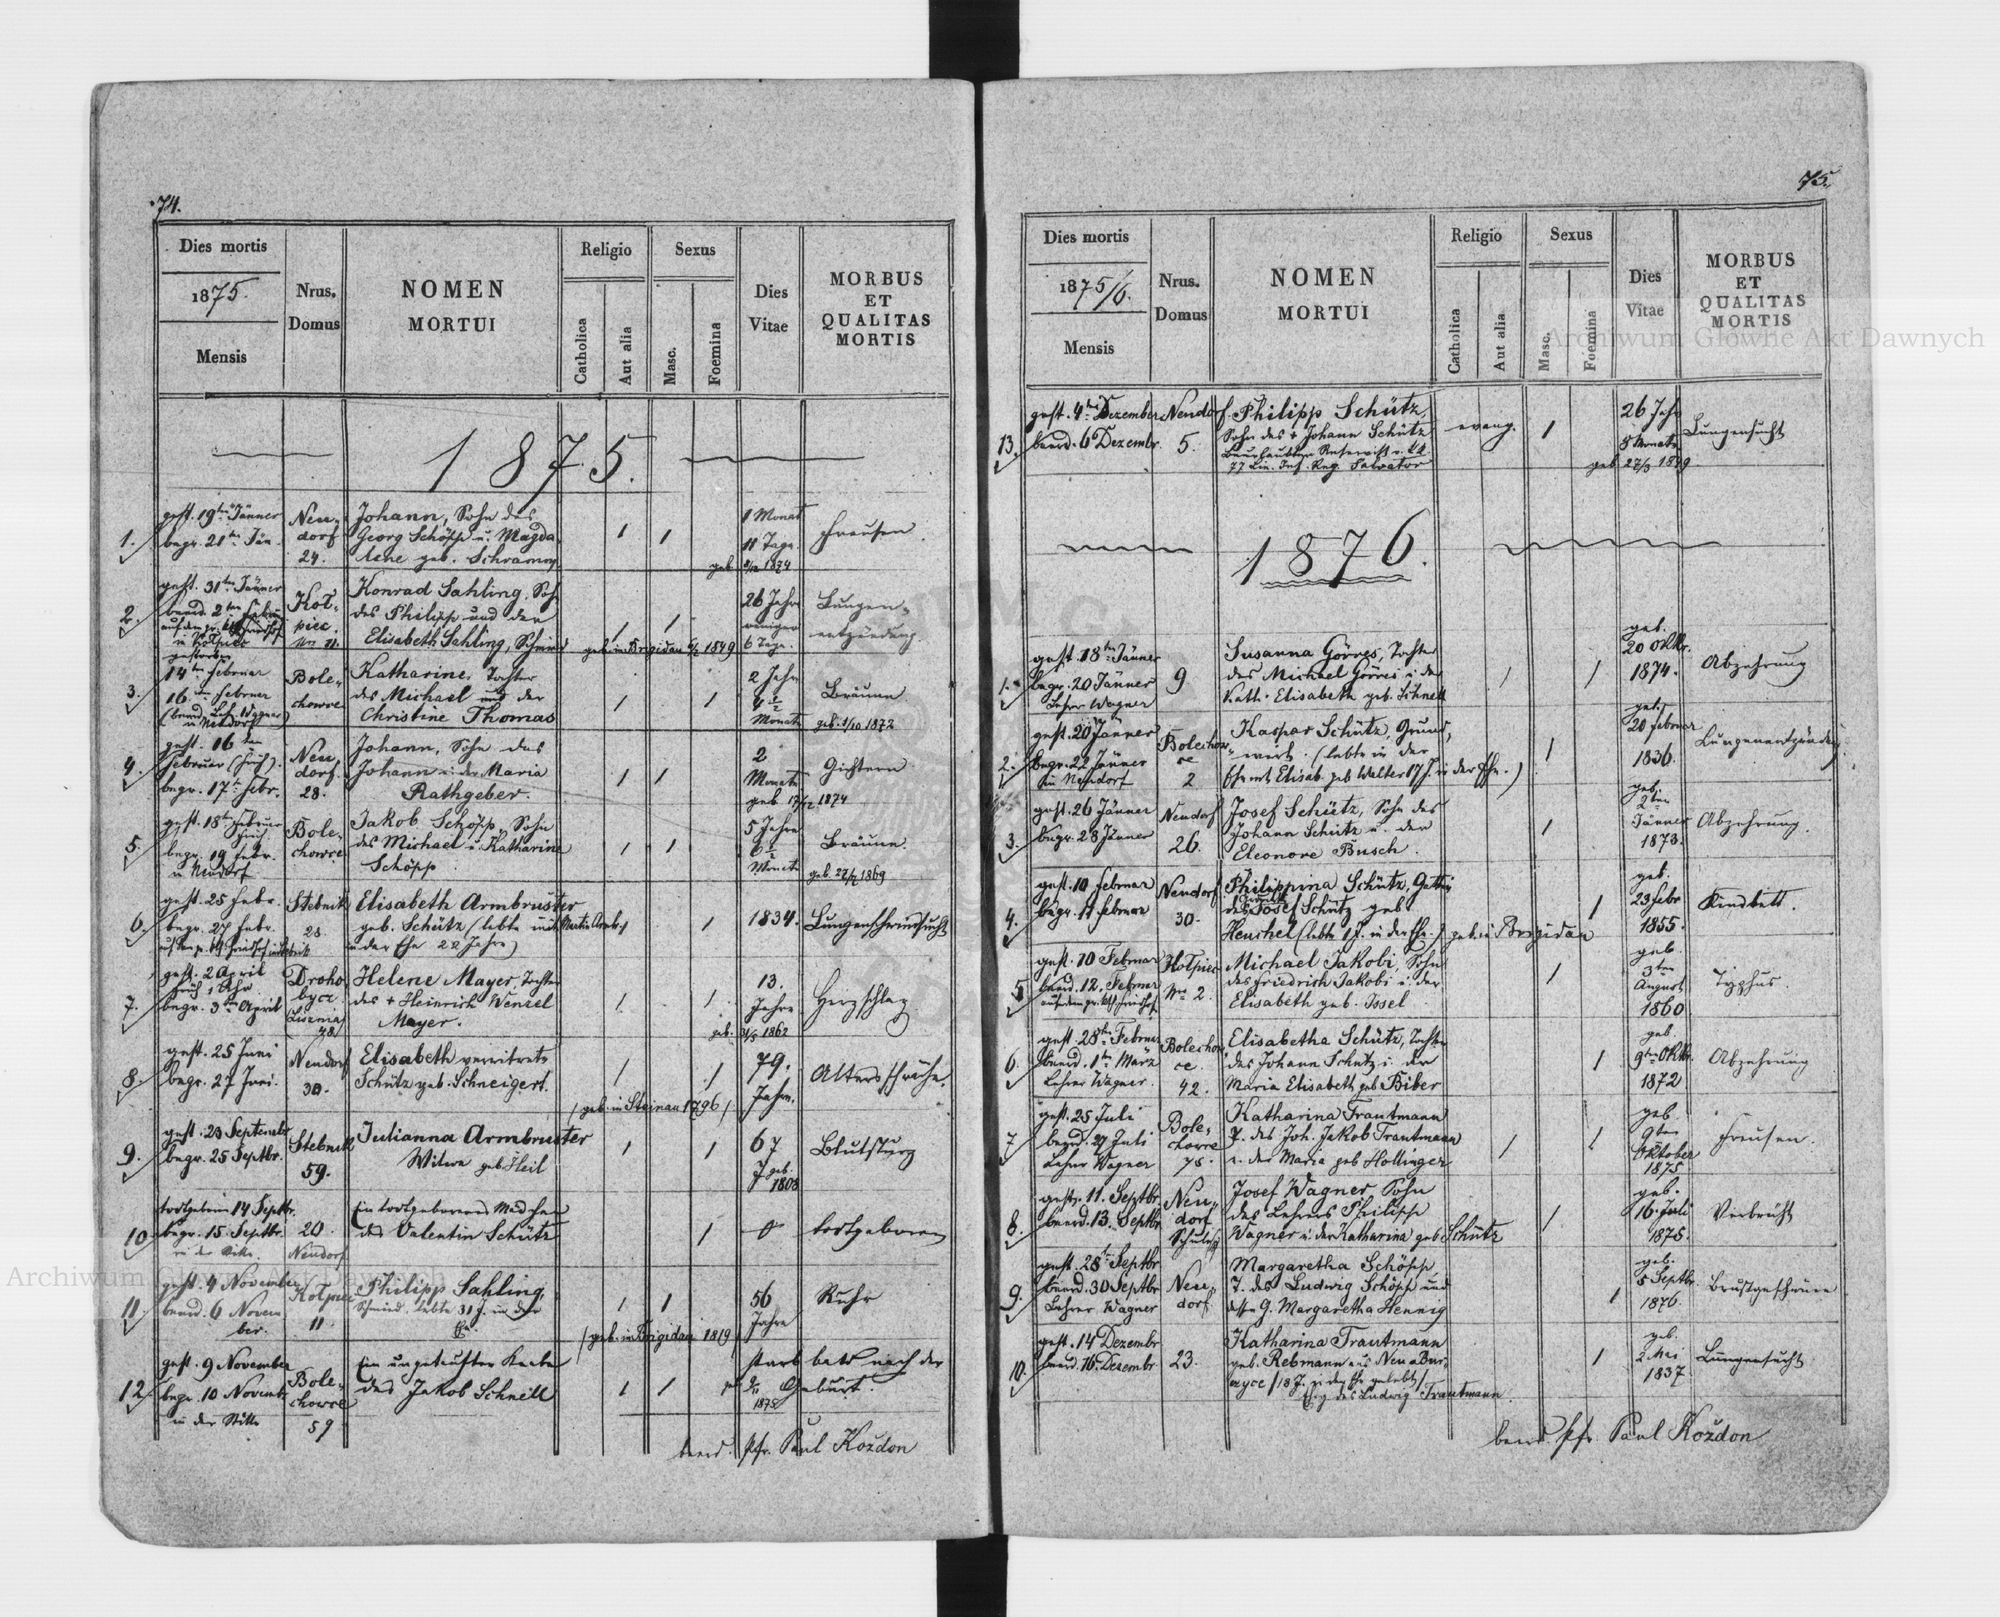 74.
Dies mortis
1875.
Mensis
Nrus. Domus
NOMEN MORTUI
Religio
Catholica
Aut alia
Sexus
Masc.
Foemina
Dies Vitae
MORBUS ET QUALITAS MORTIS
1875.
1.
gest. 19ten Jänner
begr. 21ten Jän.
Neudorf
24.
Johann, Sohn des
Georg Schöpp u. Magda
lene geb. Schramm
1 1
1 Monat
11 Tage
geb. 8/12 1874
Freusen.
2.
gest. 31ten Jänner
beerd. 2ten Februar
in Kolpiec
gestorben
Kol-
piec.
Nro 11.
Konrad Sahling, Sohn
des Philipp und der
Elisabeth Sahling, Schmied
1 1
geb. in Brigidau 6/2 1849
26 Jahre
weniger
6 Tage.
Lungen-
entzündung.
3.
14ten Februar
16ten Februar
(beerd. Leh. Wagner)
in Neudorf
Bole-
chowce
Katharine, Tochter
des Michael und der
Christine Thomas
1 1
2 Jahre
4 1/2
Monate
Bräune
geb. 1/10 1872
4.
gest. 16ten
Februar (früh).
begr. 17ten Febr.
Neu
dorf.
28.
Johann, Sohn des
Johann u. der Maria
Rathgeber.
1 1
2
Monate
geb 17/12 1874
Gichtern
5.
gest. 18ten Februar
früh
begr. 19 Febr.
in Neudorf
Bole-
chowce
Jakob Schöpp, Sohn
des Michael u. Katharine
Schöpp
1 1
5 Jahre
6 1/2
Monate
Bräune
geb. 27/7 1869
6.
gest. 25 Febr.
begr. 27 Febr.
Stebnik
28
Elisabeth Armbruster
geb. Schütz (lebte mit Martin Armb.
in der Ehe 22 Jahre)
1
1834.
Lungenschwindsucht
7.
gest. 2 April
früh 1 Uhr
begr. 3ten April
Droho
bycz
Lisznia
78.
Helene Mayer, Tochter
des + Heinrich Wenzel
Mayer.
1 1
13.
Jahre
geb. 31/5 1862
Herzschlag
8.
gest. 25 Juni
begr. 27 Juni.
Neudorf
30.
Elisabeth verwitwete
Schütz geb. Schneigert.
/geb. in Steinau 1796/
1 1
79.
Jahre.
Altersschwäche.
9.
gest. 23 September
begr. 25 Septbr.
Stebnik
59.
Julianna Armbruster
Witwe geb. Heil
1 1
67
J. geb. 1808
Blutsturz
10
todtgeboren 14 Septbr.
begr. 15 Septbr.
in der Stille.
20.
Neudorf
Ein todtgeborenes Mädchen
des Valentin Schütz
1
0
todtgeboren
11.
gest. 4 November
beerd. 6 Novem
ber.
Kolpiec
11
Philipp Sahling,
Schmied, lebte 31 J. in der
Ehe.
1 1
/geb. in Brigidau 1819/
56
Jahre
Ruhr
12.
gest. 9 November
begr. 10 Novembr.
in der Stille
Bole-
chowce
59
Ein ungetaufter Knabe
des Jakob Schnell
1 1
starb bald nach der
geb. 9/11 Geburt.
1875
beerd. Pfr. Paul Kozdon
75.
Dies mortis
1875/6.
Mensis
Nrus. Domus
NOMEN MORTUI
Religio
Catholica
Aut alia
Sexus
Masc.
Foemina
Dies Vitae
MORBUS ET QUALITAS MORTIS
13.
gest. 4ten Dezember
beerd. 6 Dezembr.
Neudorf.
5.
Philipp Schütz,
Sohn des + Johann Schütz
Beurlaubter Reservist v. k.k.
77 Lin. Inf. Reg. Salvator
evang.
1
26 Jahr
8 Monate
geb 27/3 1849
Lungensucht
1876.
1.
gest. 18ten Jänner
begr. 20 Jänner
Lehrer Wagner
9
Susanna Görres, Tochter
des Michael Görres u. der
Kath. Elisabeth geb. Schnell
1 1
geb.
20 Oktbr.
1874.
Abzehrung
2.
gest. 20ten Jänner
begr. 22 Jänner
in Neudorf
Bolechow-
ce
2
Kaspar Schütz, Grund-
wirt. (lebte in der
Ehe mit Elisab. geb Walter 17 J. in der Ehe.)
1
geb.
20 Februar
1836.
Lungenentzündung.
3.
gest. 26 Jänner
begr. 28 Jänner
Neudorf
26.
Josef Schütz, Sohn des
Johann Schütz u. der
Eleonore Busch.
1
geb.
2ten
Jänner
1873.
Abzehrung.
4.
gest. 10 Februar
begr. 12 Februar
Neudorf
30.
Philippina Schütz, Gattin
des Josef Schütz geb.
Heuchel (lebte 1 J. in der Ehe.) geb. in Brigidau
1
geb.
23 Febr
1855.
Kindbett.
5
gest. 10 Februar
beerd. 12. Februar
Kolpiec
Nro 2.
Michael Jakobi, Sohn
des Friedrich Jakobi u. der
Elisabeth geb. Issel
1
geb
3ten
August
1860
Typhus.
6.
gest. 28ten Februar
beerd. 1ten März
Lehrer Wagner.
Bolechow-
ce.
42.
Elisabetha Schütz, Tochter
des Johann Schütz u. der
Maria Elisabeth geb Biber
1
geb
9ten Oktbr.
1872
Abzehrung
7
gest. 25 Juli
beerd. 27 Juli
Lehrer Wagner
Bole-
chowce
75.
Katharina Trautmann
T. des Joh. Jakob Trautmann
u. der Maria geb Hollinger
1 1
geb.
9ten
Oktober
1875
Freusen.
8.
gest. 11. Septbr.
beerd. 13. Septbr
Neu-
dorf
Schule
Josef Wagner, Sohn
des Lehrers Philipp
Wagner u. der Katharina geb. Schütz
1
geb.
16 Juli
1875.
9.
gest. 28ten Septbr
beerd. 30 Septbr
Lehrer Wagner
Neu-
dorf.
Margaretha Schöpp
T. des Ludwig Schöpp und
dess. G. Margaretha Hennig
1
geb.
5 Septbr.
1876.
10.
gest. 14 Dezembr
beerd. 16. Dezembr
23.
Katharina Trautmann
geb. Rebmann aus Neu a Bur-
czyce /18 J. in der Ehe gelebt/
Ehg. des Ludwig Trautmann
1
geb.
2 Mai
1837.
Lungensucht
beerd. Pfr. Paul Kozdon
Archiwum Główne Akt Dawnych
Archiwum Główne Akt Dawnych